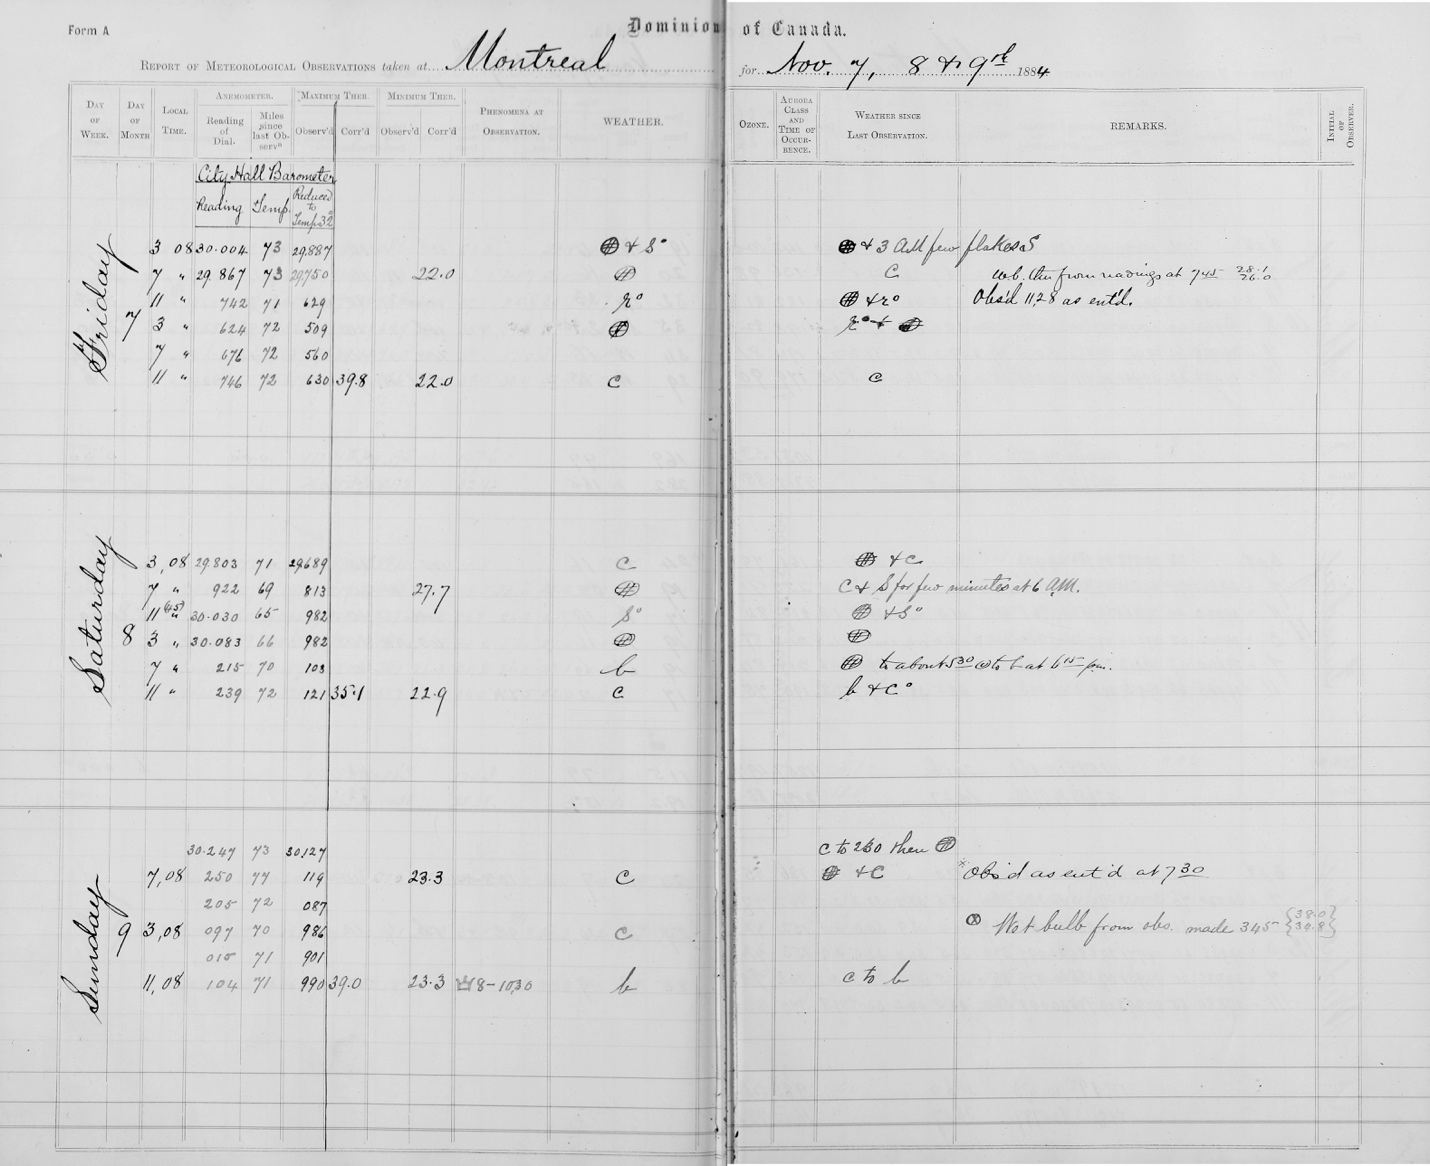 Form A
Dominion of Canada.
REPORT OF METEOROLOGICAL OBSERVATIONS taken at Montreal for Nov. 7, 8 & 9th 1884
DAY OF WEEK.
DAY OF MONTH
LOCAL TIME.
ANEMOMETER.
Reading of Dial.
Miles since last Observn
MAXIMUM THER.
Observ'd
Corr'd
MINIMUM THER.
Observ'd
Corr'd
PHENOMENA AT OBSERVATION.
WEATHER.
OZONE.
AURORA CLASS AND TIME OF OCCUR-RENCE.
WEATHER SINCE LAST OBSERVATION.
REMARKS.
INITIAL OF OBSERVER.
City Hall Barometer
Reading Temp. Reduced to Temp. 32°
Friday 7
3 08 30.004 73 29.887 & S° & 3 AM few flakes S
7 " 29.867 73 29.750 22.0 C wb. ther from readings at 7 45 28.1 26.0
11 " 742 71 629 r° & r° Obs'd 11,28 as ent'd.
3 " 624 72 509 r° +
7 " 676 72 560
11 " 746 72 630 39.8 22.0 C C
Saturday 8
3,08 29.803 71 29.689 C & C
7 " 922 69 813 27.7 C & S for few minutes at 6 A.M.
11 (45) " 30.030 65 982 S° & S°
3 " 30.083 66 982
7 " 215 70 103 b to about 5 30 to b at 6 15 pm.
11 " 239 72 121 35.1 22.9 C b & C°
Sunday 9
30.247 73 30,127 C to 2 30 then
7,08 250 77 119 23.3 C & C Obs'd as ent'd at 7 30
205 72 087
3,08 097 70 986 C Wet bulb from obs. made 3 45 38.0 34.8
015 71 901
11,08 104 71 990 39.0 23.3 8-10,30 b C to b